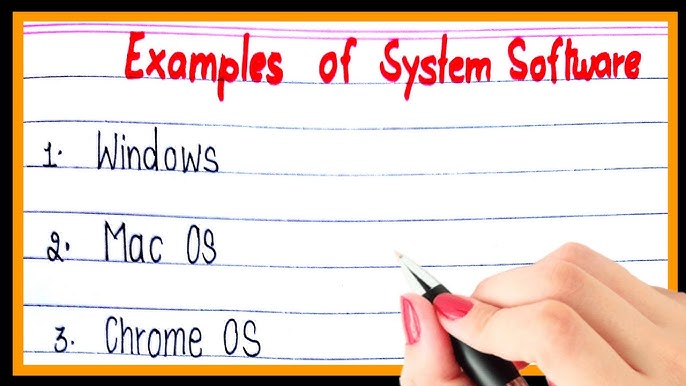 Examples of System Software
1. Windows
2. Mac OS
3. Chrome OS